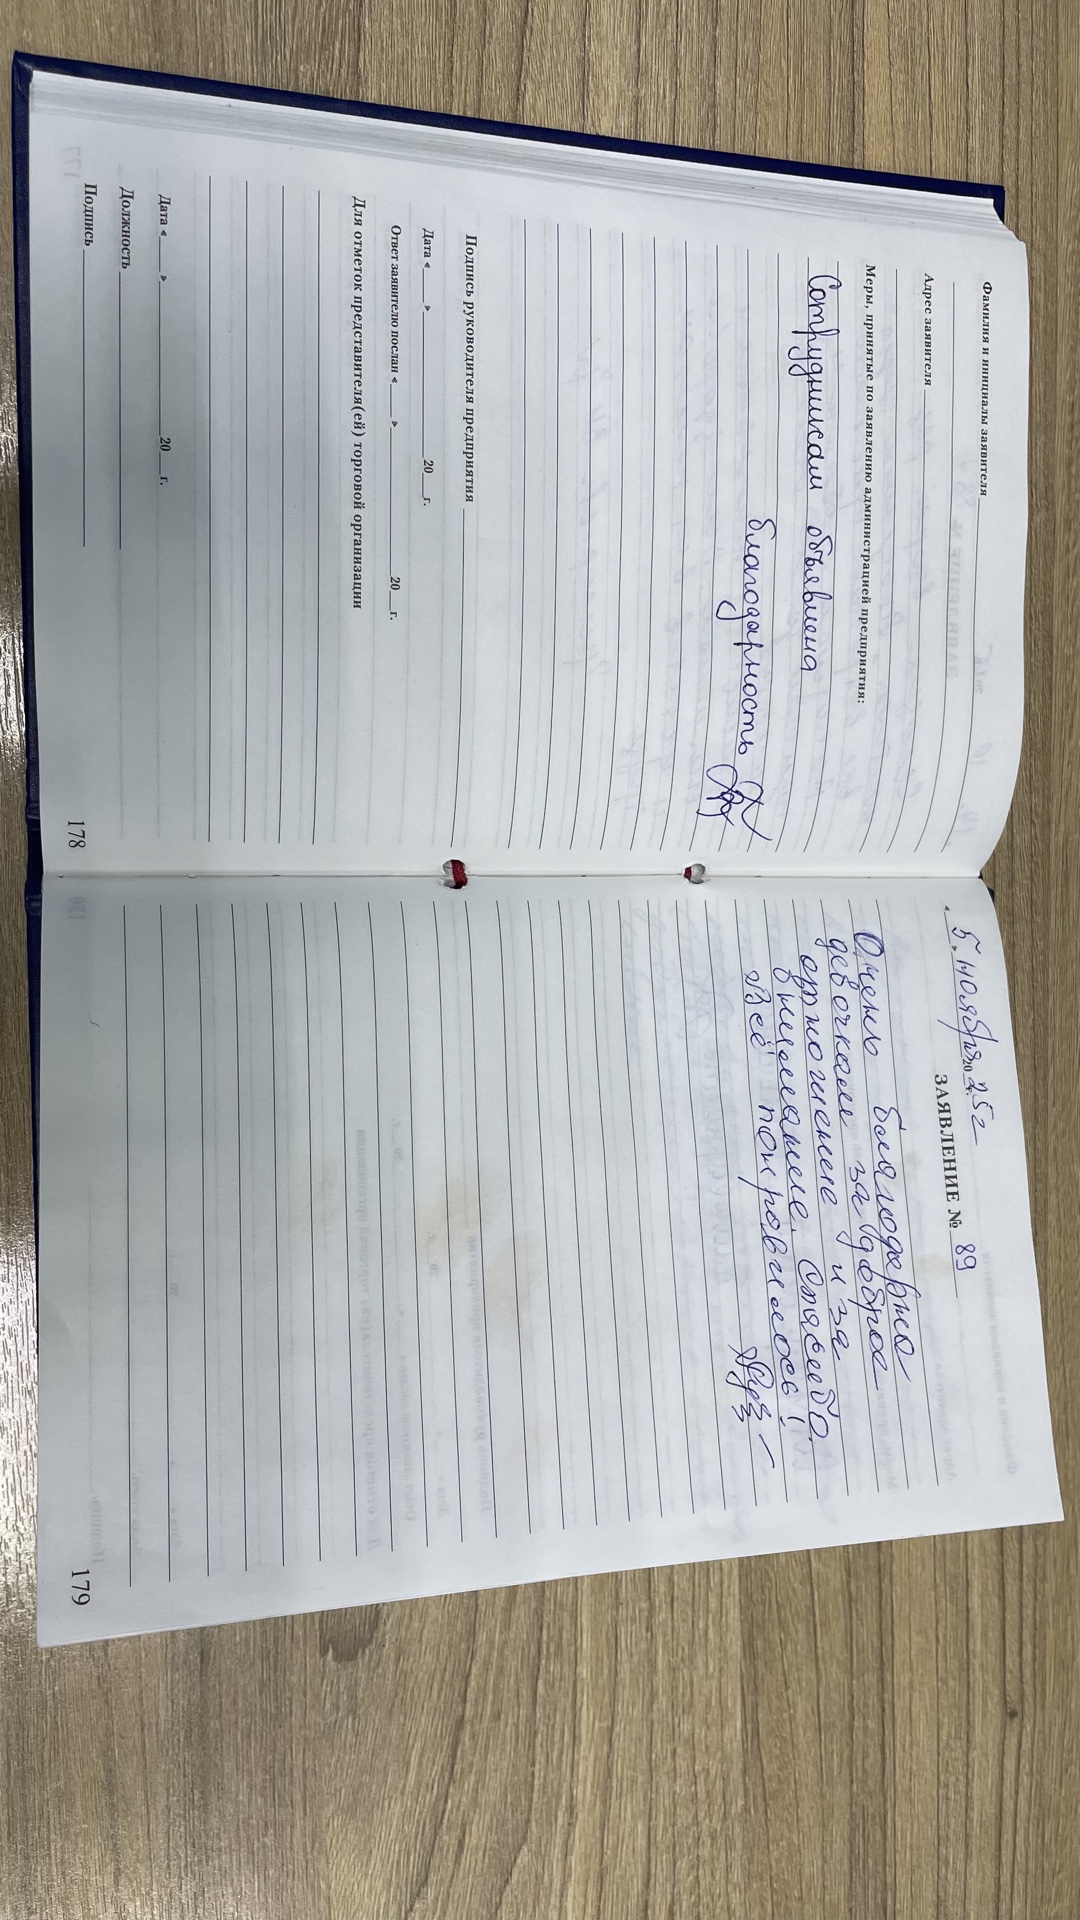 Фамилия и инициалы заявителя
Адрес заявителя
Меры, принятые по заявлению администрацией предприятия:
Сотрудникам объявлена
благодарность
Подпись руководителя предприятия
Дата « » 20 г.
Ответ заявителю послан « » 20 г.
Для отметок представителя(ей) торговой организации
Дата « » 20 г.
Должность
Подпись
178
5. ноября 2025г
ЗАЯВЛЕНИЕ № 89
Очень благодарна
девочкам за доброе
отношение и за
внимание. Спасибо.
Всё понравилось!
179